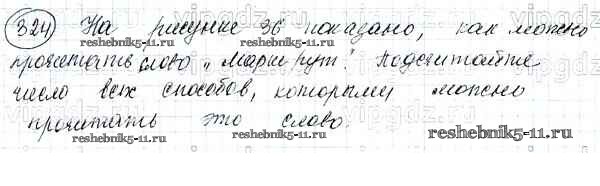 324) На рисунке 36 показано, как можно
reshebnik5-11.ru reshebnik5-11.ru
прочитать слово „Маршрут". Подсчитайте
число всех способов, которыми можно
reshebnik5-11.ru
прочитать это слово.
reshebnik5-11.ru reshebnik5-11.ru